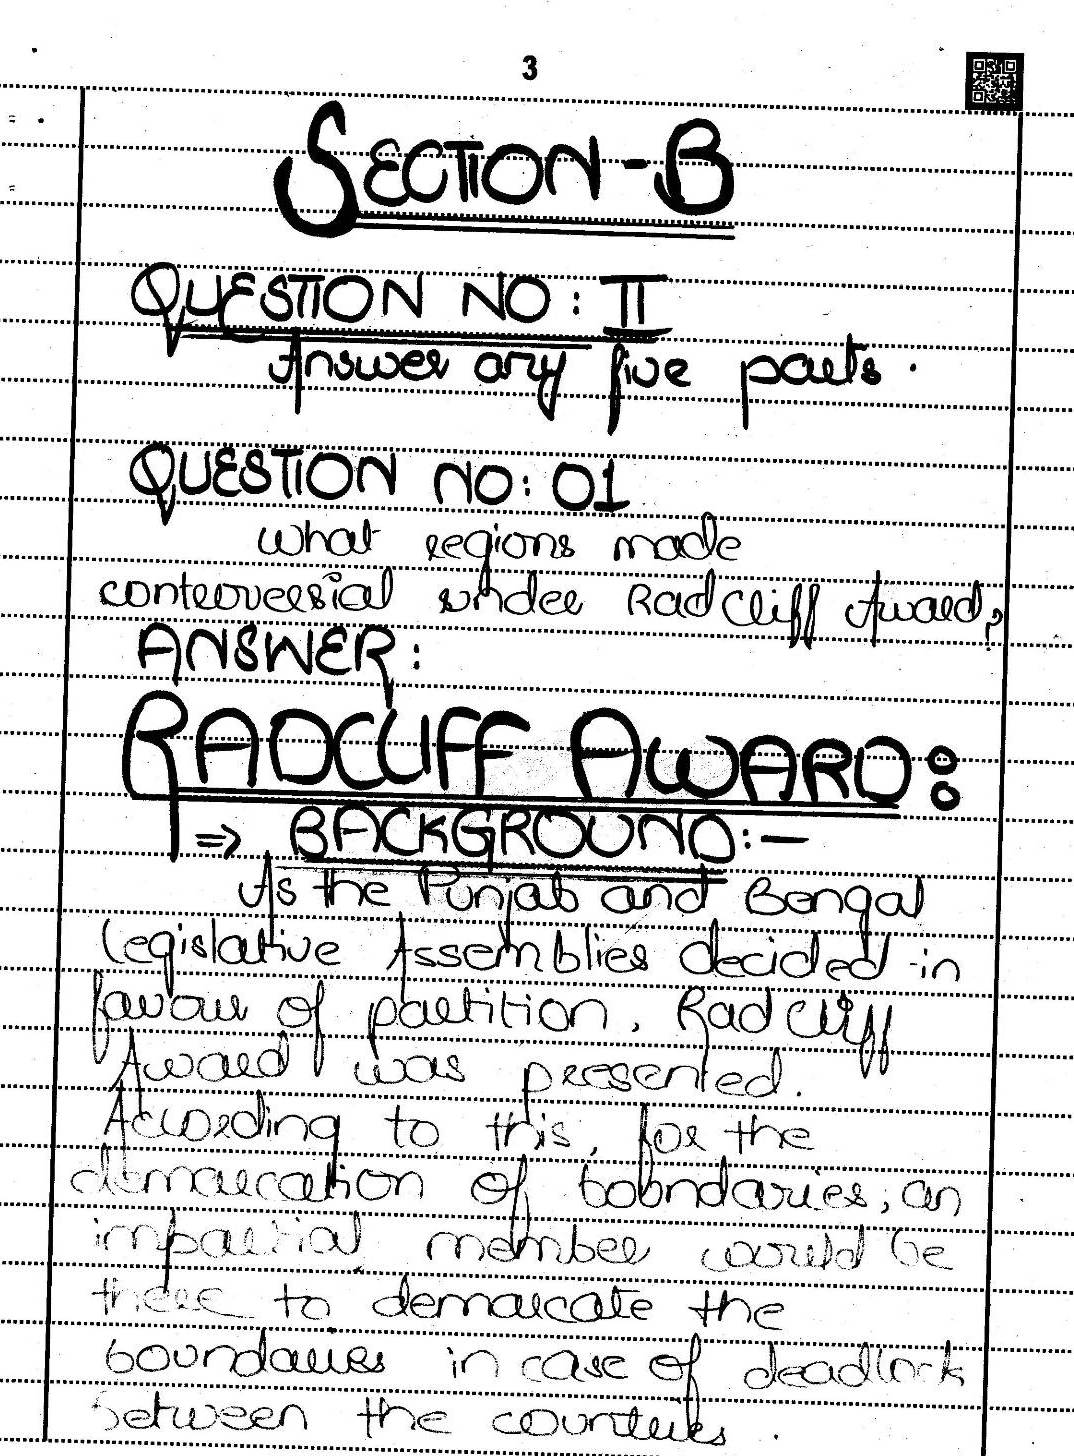 3
SECTION-B
QUESTION NO: II
Answer any five parts.
QUESTION NO: 01
What regions made
controversial under Radcliff Award?
ANSWER:
RADCLIFF AWARD:
⇒ BACKGROUND:-
As the Punjab and Bengal
Legislative Assemblies decided in
favour of partition, Radcliff
Award was presented.
According to this, for the
demarcation of boundaries, an
impartial member would be
there to demarcate the
boundaries in case of deadlock
between the countries.